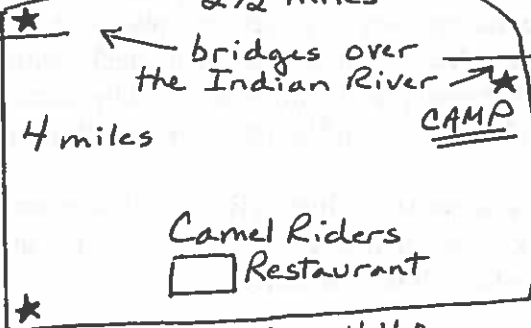 2½ miles
bridges over
the Indian River
CAMP
4 miles
Camel Riders
Restaurant